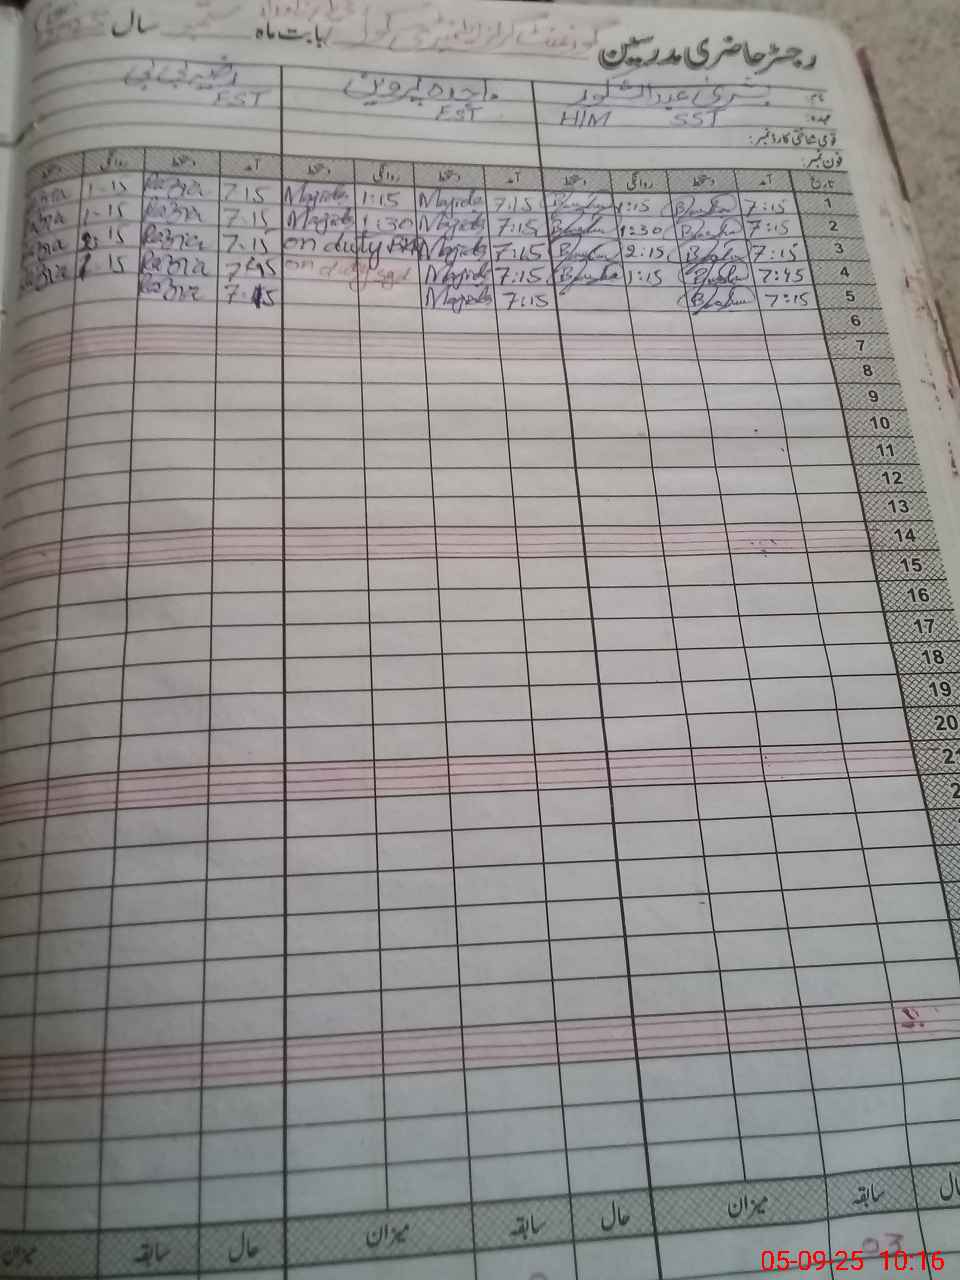 رجسٹر حاضری مدرسین گورنمنٹ گرلز ایلیمنٹری سکول بابت ماہ ستمبر سال
نام: بشریٰ عبدالشکور ماجدہ پروین رضیہ بی بی
عہدہ: SST H/M EST EST
قومی شناختی کارڈ نمبر:
فون نمبر:
تاریخ آمد دستخط روانگی دستخط آمد دستخط روانگی دستخط آمد دستخط روانگی دستخط
1 7:15 Bushra 1:15 Bushra 7:15 Majida 1:15 Majida 7:15 Razia 1-15 Razia
2 7:15 Bushra 1:30 Bushra 7:15 Majida 1:30 Majida 7.15 Razia 1-15 Razia
3 7:15 Bushra 2:15 Bushra 7:15 Majida on duty 7.15 Razia 2:15 Razia
4 7:15 Bushra 1:15 Bushra 7:15 Majida on duty 7:15 Razia 1-15 Razia
5 7:15 Bushra 7:15 Majida 7.15 Razia
6
7
8
9
10
11
12
13
14
15
16
17
18
19
20
21
2
حال سابقہ میزان حال سابقہ میزان حال سابقہ میزان
03
05-09-25 10:16